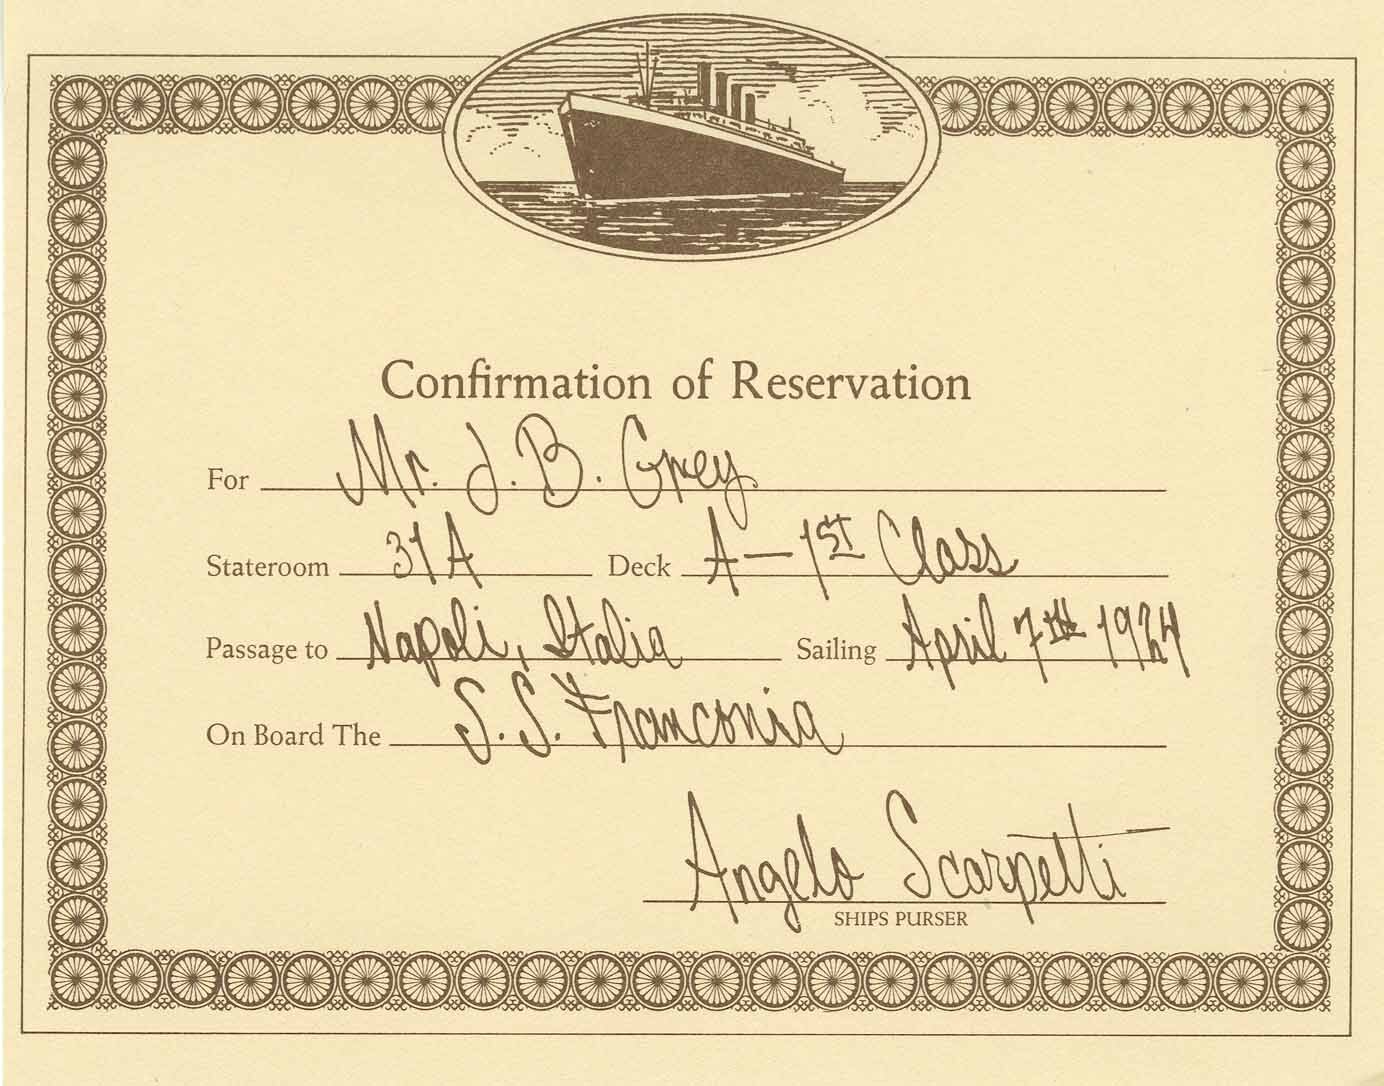 Confirmation of Reservation
For Mr. J. B. Grey
Stateroom 31A Deck A - 1ST Class
Passage to Napoli, Italia Sailing April 7th 1924
On Board The S.S. Franconia
Angelo Scarpetti
SHIPS PURSER